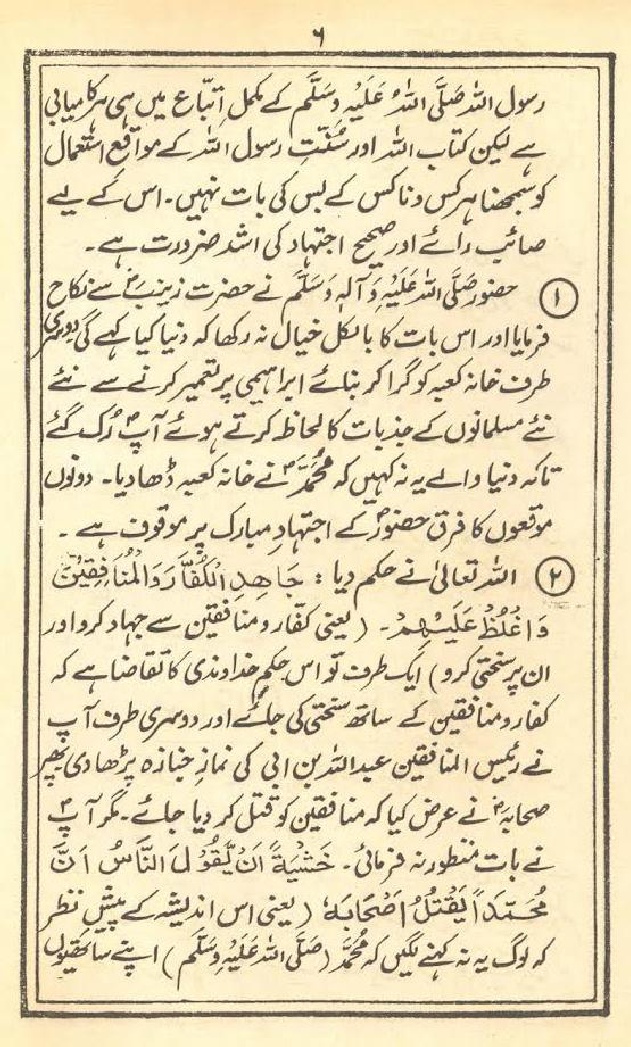 ۶
رسول اللہ صَلَّی اللہُ عَلَیْہِ وَسَلَّم کے مکمل اِتّباع میں ہی ہر کامیابی
ہے لیکن کتاب اللہ اور سُنّتِ رسول اللہ کے مواقع استعمال
کو سمجھنا ہر کس و ناکس کے بس کی بات نہیں۔ اس کے لیے
صائب رائے اور صحیح اجتہاد کی اشد ضرورت ہے۔
① حضور صَلَّی اللہ عَلَیْہِ وَآلِہٖ وَسَلَّم نے حضرت زینبؓ سے نکاح
فرمایا اور اس بات کا بالکل خیال نہ رکھا کہ دنیا کیا کہے گی دوسری
طرف خانہ کعبہ کو گرا کر بنائے ابراہیمی پر تعمیر کرنے سے نئے
نئے مسلمانوں کے جذبات کا لحاظ کرتے ہوئے آپؐ رُک گئے
تاکہ دنیا والے یہ نہ کہیں کہ مُحَمَّدؐ نے خانہ کعبہ ڈھا دیا۔ دونوں
موقعوں کا فرق حضورؐ کے اجتہادِ مبارک پر موقوف ہے۔
② اللہ تعالیٰ نے حکم دیا : جَاھِدِ الْکُفَّارَ وَالْمُنَافِقِیْنَ
وَاغْلُظْ عَلَیْھِمْ۔ (یعنی کفّار و منافقین سے جہاد کرو اور
ان پر سختی کرو) ایک طرف تو اس حکمِ خداوندی کا تقاضا ہے کہ
کفار و منافقین کے ساتھ سختی کی جائے اور دوسری طرف آپؐ
نے رئیس المنافقین عبداللہ بن ابی کی نمازِ جنازہ پڑھا دی پھر
صحابہؓ نے عرض کیا کہ منافقین کو قتل کر دیا جائے۔ مگر آپؐ
نے بات منظور نہ فرمائی۔ خَشْیَةً اَنْ یَّقُوْلَ النَّاسُ اَنَّ
مُحَمَّدًا یَقْتُلُ اَصْحَابَہٗ (یعنی اس اندیشہ کے پیشِ نظر
کہ لوگ یہ نہ کہنے لگیں کہ مُحَمَّد (صَلَّی اللہ عَلَیْہِ وَسَلَّم) اپنے ساتھیوں